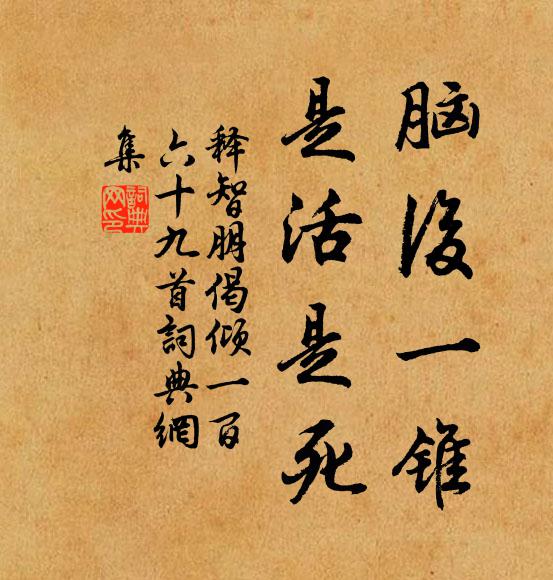 脑後一锥
是活是死
释智朋偈倾一百
六十九首詞典網
集
詞典网印